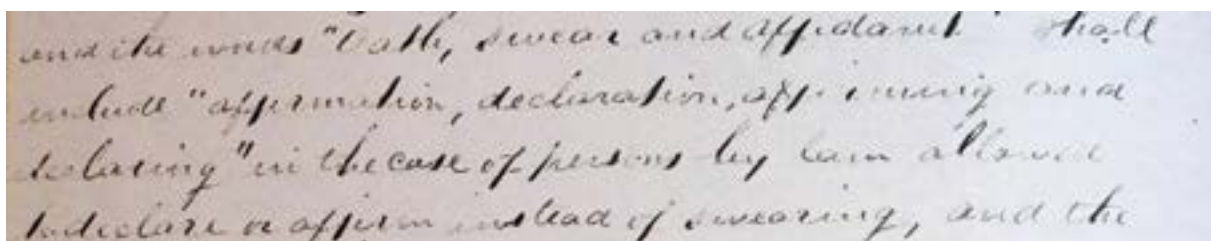 and the words "Oath, swear and affidavit" shall
include "affirmation, declaration, affirming and
declaring" in the case of persons by law allowed
to declare or affirm instead of swearing, and the